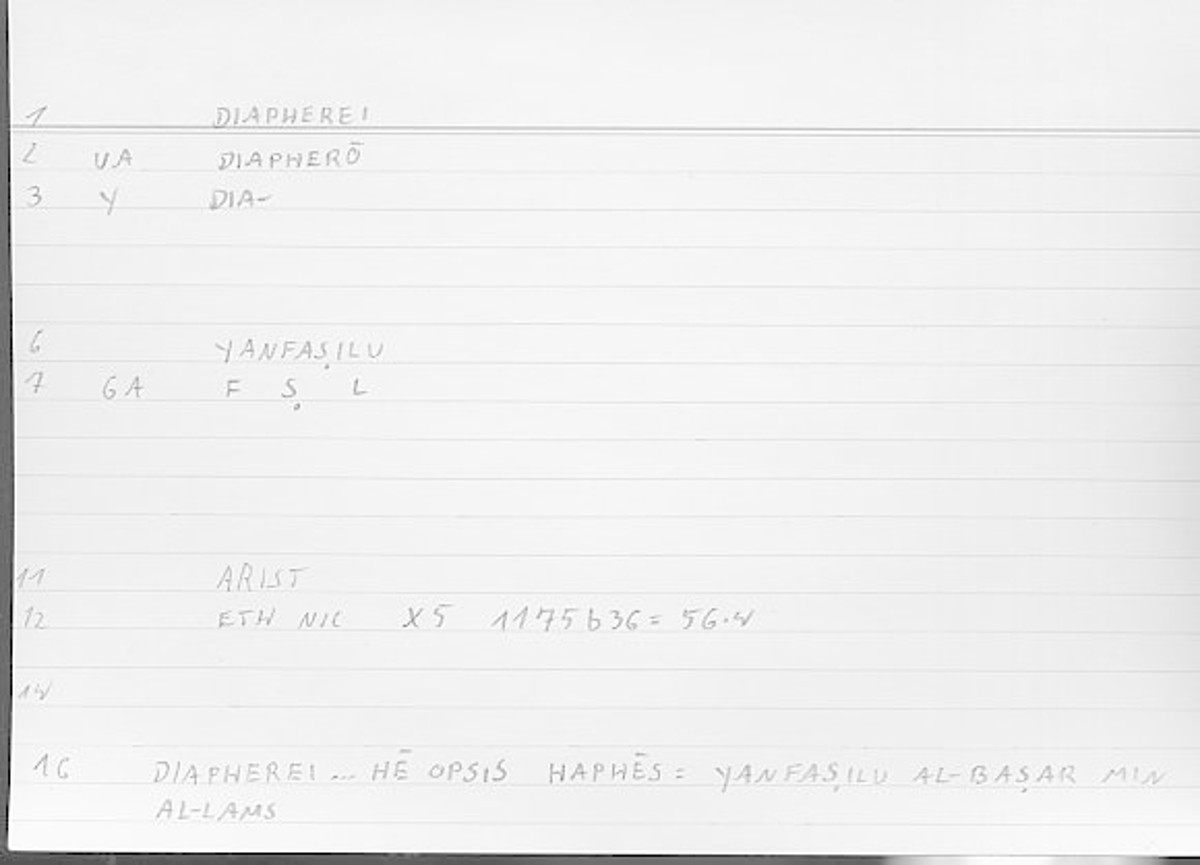 1 DIAPHEREI
2 VA DIAPHERŌ
3 Y DIA-
6 YANFAṢILU
7 GA F Ṣ L
11 ARIST
12 ETH NIC X5 1175b36 = 56.4
14
16 DIAPHEREI ... HĒ OPSIS HAPHĒS = YANFAṢILU AL-BAṢAR MIN
AL-LAMS